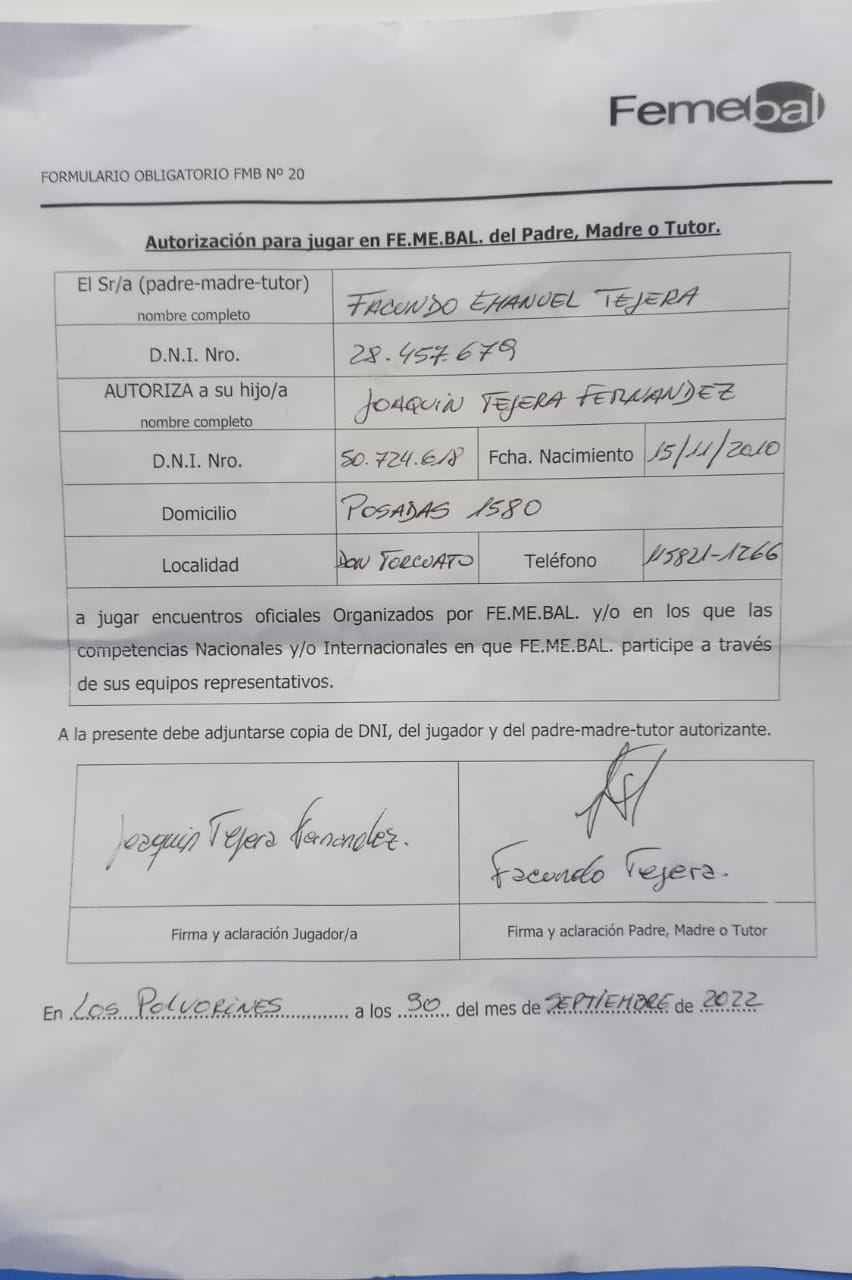 Femebal
FORMULARIO OBLIGATORIO FMB Nº 20
Autorización para jugar en FE.ME.BAL. del Padre, Madre o Tutor.
El Sr/a (padre-madre-tutor)
nombre completo
FACUNDO EMANUEL TEJERA
D.N.I. Nro.
28.457.679
AUTORIZA a su hijo/a
nombre completo
JOAQUIN TEJERA FERNANDEZ
D.N.I. Nro.
50.724.618
Fcha. Nacimiento
15/11/2010
Domicilio
POSADAS 1580
Localidad
DON TORCUATO
Teléfono
115821-1266
a jugar encuentros oficiales Organizados por FE.ME.BAL. y/o en los que las
competencias Nacionales y/o Internacionales en que FE.ME.BAL. participe a través
de sus equipos representativos.
A la presente debe adjuntarse copia de DNI, del jugador y del padre-madre-tutor autorizante.
Joaquin Tejera Fernandez.
Facundo Tejera.
Firma y aclaración Jugador/a
Firma y aclaración Padre, Madre o Tutor
En LOS POLVORINES a los 30 del mes de SEPTIEMBRE de 2022